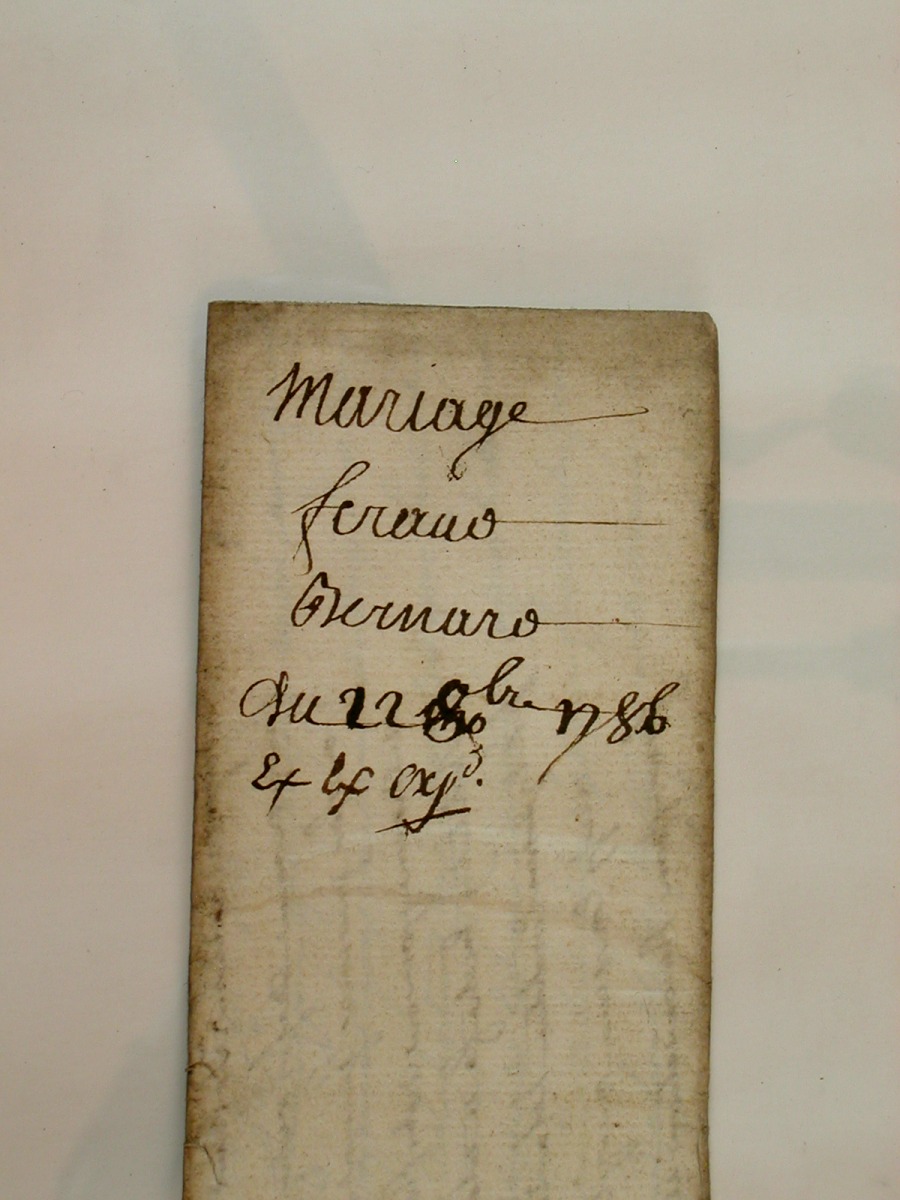 Mariage
feraud
Bernard
du 22 8bre 1786
Ex Ex exp.